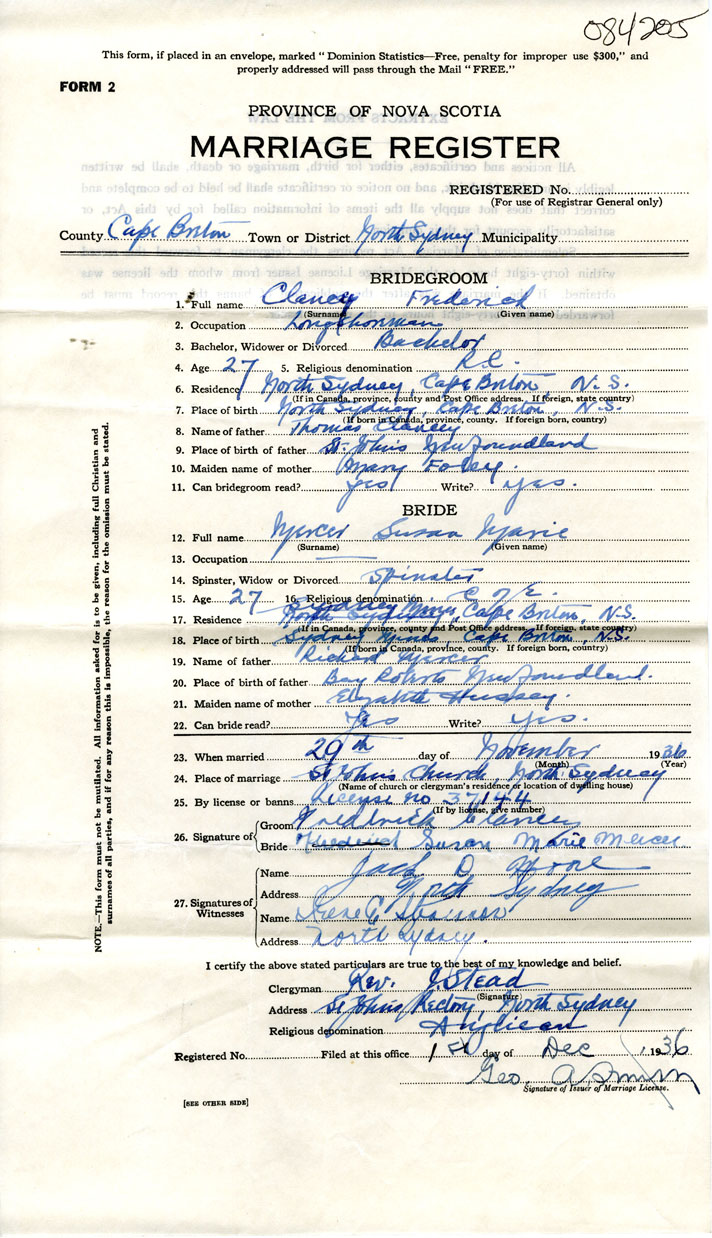 084205
This form, if placed in an envelope, marked "Dominion Statistics—Free, penalty for improper use $300," and
properly addressed will pass through the Mail "FREE."
FORM 2
PROVINCE OF NOVA SCOTIA
MARRIAGE REGISTER
REGISTERED No.
(For use of Registrar General only)
County Cape Breton Town or District North Sydney Municipality
BRIDEGROOM
1. Full name Clancy Frederick
(Surname) (Given name)
2. Occupation Longshoreman
3. Bachelor, Widower or Divorced Bachelor
4. Age 27 5. Religious denomination R.C.
6. Residence North Sydney, Cape Breton, N.S.
(If in Canada, province, county and Post Office address. If foreign, state country)
7. Place of birth North Sydney, Cape Breton, N.S.
(If born in Canada, province, county. If foreign born, country)
8. Name of father Thomas Clancy
9. Place of birth of father St. John's Newfoundland
10. Maiden name of mother Mary
11. Can bridegroom read? yes Write? yes.
BRIDE
12. Full name Mercer Susan Marie
(Surname) (Given name)
13. Occupation
14. Spinster, Widow or Divorced Spinster
15. Age 27 16. Religious denomination C of E.
17. Residence Sydney Mines, Cape Breton, N.S.
(If in Canada, province, county and Post Office address. If foreign, state country)
18. Place of birth Sydney Mines Cape Breton, N.S.
(If born in Canada, province, county. If foreign born, country)
19. Name of father Richard Mercer
20. Place of birth of father Bay Roberts Newfoundland.
21. Maiden name of mother Elizabeth Hussey.
22. Can bride read? Yes Write? yes.
23. When married 29th day of November 1936
(Month) (Year)
24. Place of marriage St John's Church, North Sydney
(Name of church or clergyman's residence or location of dwelling house)
25. By license or banns License no 37144
(If by license, give number)
26. Signature of Groom Fredrick Clancy
Bride Susan Marie Mercer
27. Signatures of Witnesses
Name Jack D Moore
Address North Sydney
Name Irene
Address North Sydney.
I certify the above stated particulars are true to the best of my knowledge and belief.
Clergyman Rev. J. Stead
(Signature)
Address St Johns Rectory, North Sydney
Religious denomination Anglican
Registered No. Filed at this office 1st day of Dec 1936
Geo. A Smith
Signature of Issuer of Marriage License.
[SEE OTHER SIDE]
NOTE.—This form must not be mutilated. All information asked for is to be given, including full Christian and
surnames of all parties, and if for any reason this is impossible, the reason for the omission must be stated.